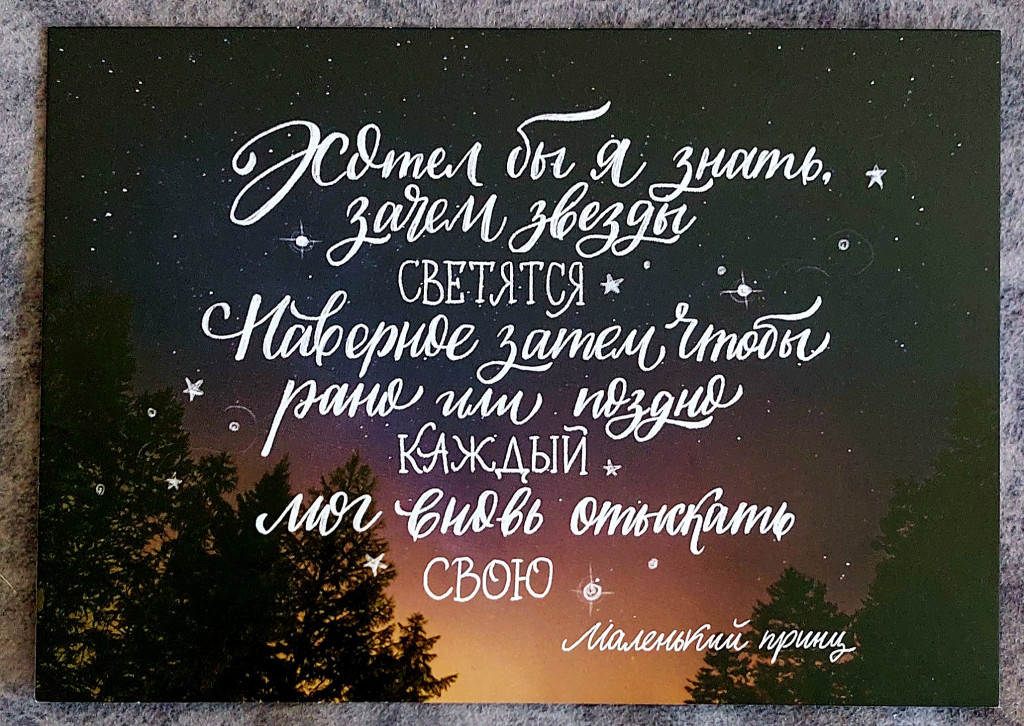 Хотел бы я знать,
зачем звезды
СВЕТЯТСЯ
Наверное затем, чтобы
рано или поздно
КАЖДЫЙ
мог вновь отыскать
СВОЮ
Маленький принц